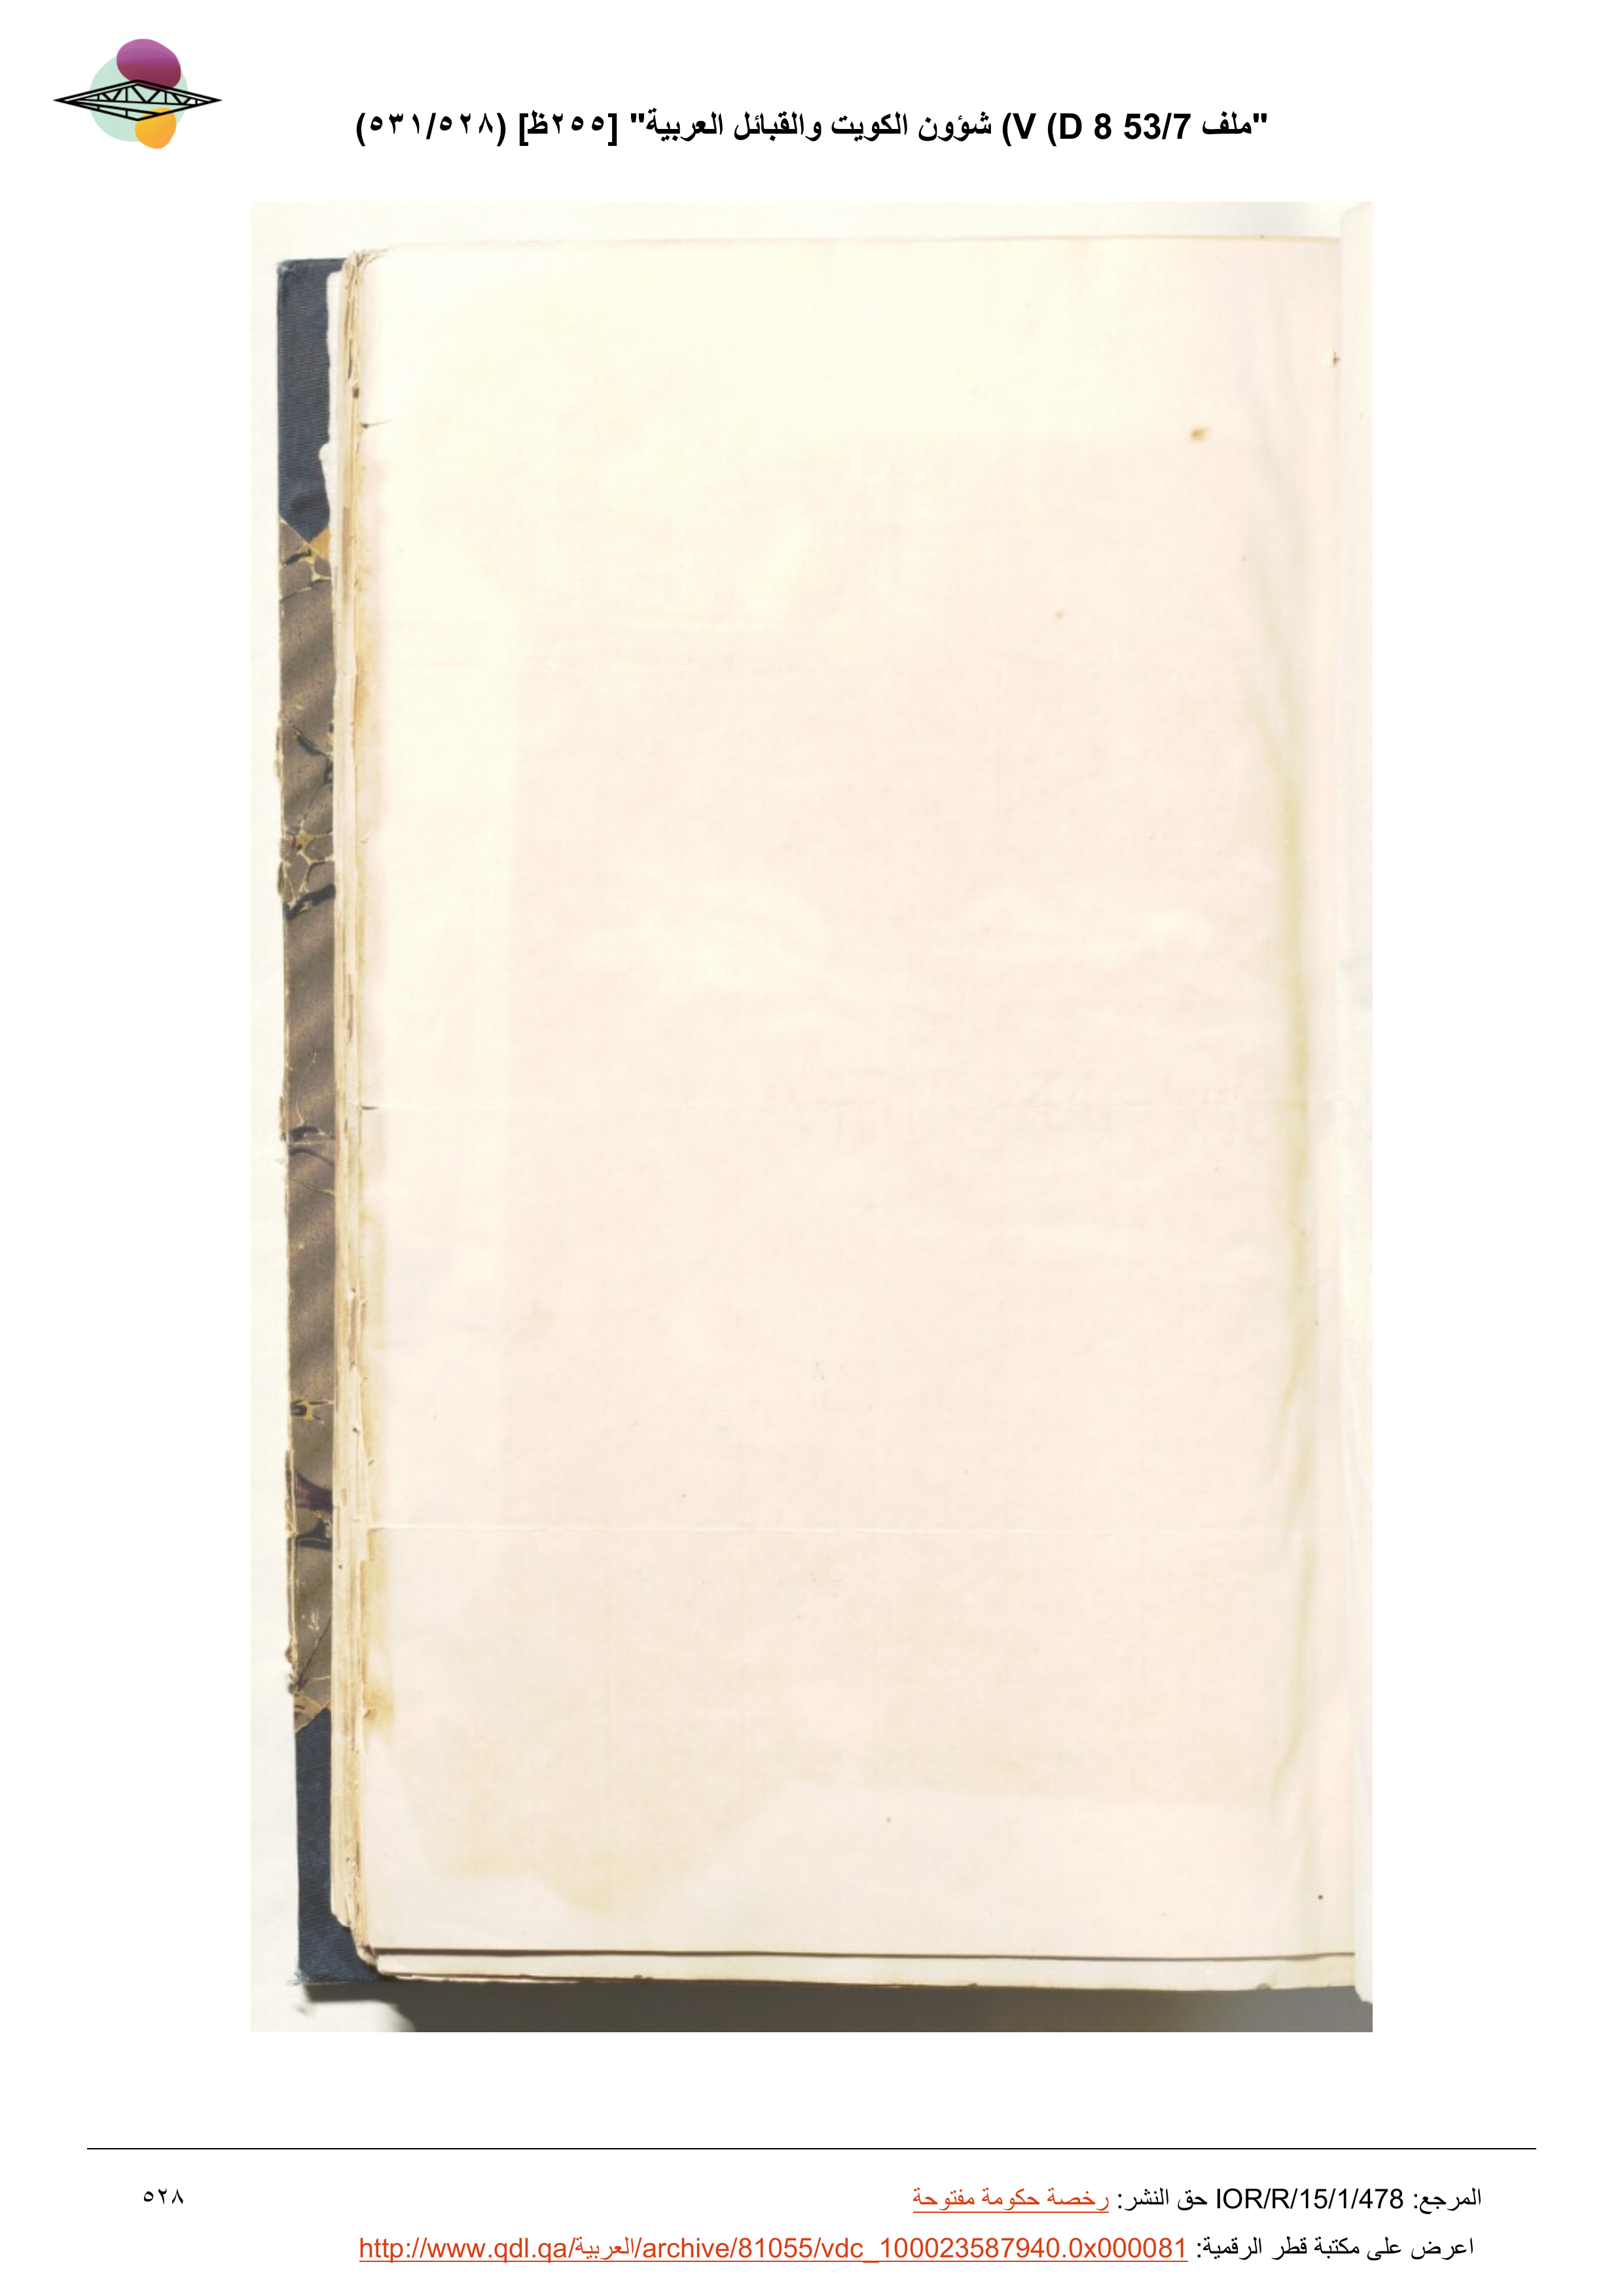 "ملف 53/7 D 8) V) شؤون الكويت والقبائل العربية" [٢٥٥ظ] (٥٢٨/٥٣١)
المرجع: IOR/R/15/1/478 حق النشر: رخصة حكومة مفتوحة
٥٢٨
اعرض على مكتبة قطر الرقمية: http://www.qdl.qa/العربية/archive/81055/vdc_100023587940.0x000081